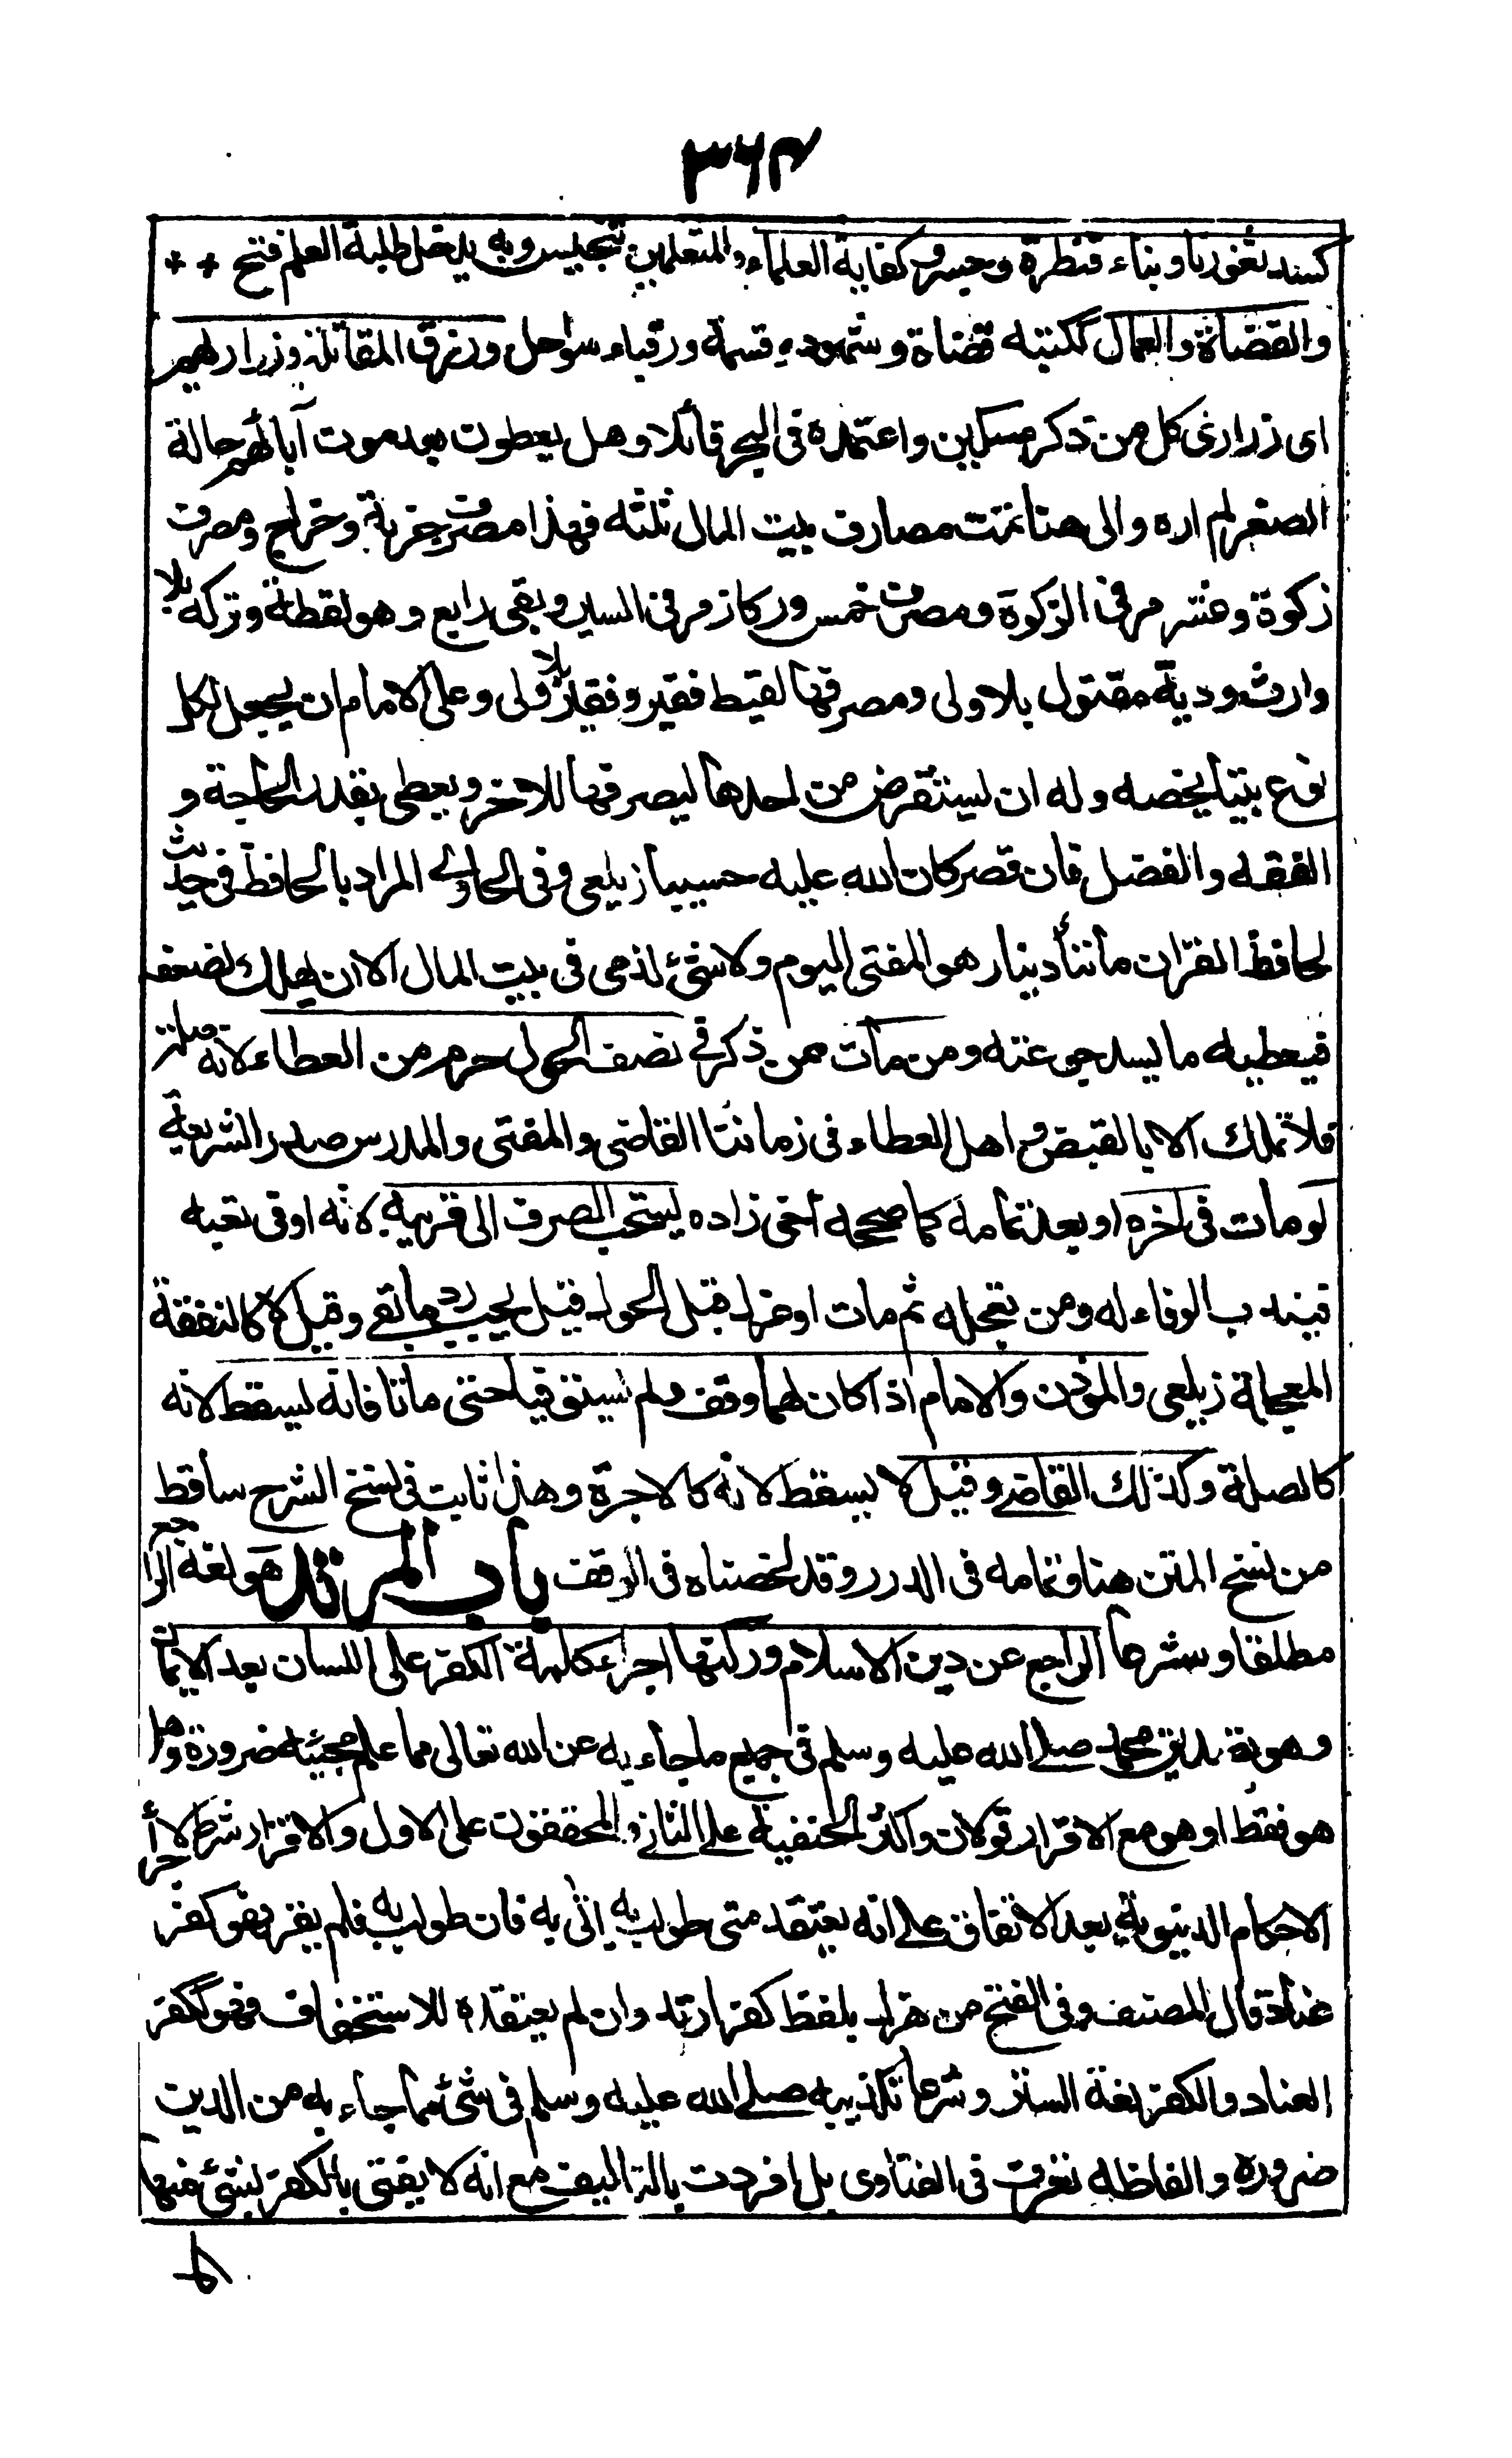 ٣٦٣
كسد ثغورنا وبناء قنطرة وجسر وكفاية العلماء والمتعلمين تجنيس وبه يدخل طلبة العلم فتح
والقضاة والعمال ككتبة قضاة وشهود قسمة ورقباء سواحل ورزق المقاتلة وزراريهم
اى زرارى كل من ذكر مسكين واعتمده فى البحر قائلا وهل يعطون بعد موت آبائهم حالة
الصغر لم اره والى هنا تمت مصارف بيت المال ثلثه فهذا مصرف جزية وخراج ومصرف
زكوة وعشر مر فى الزكوة ومصرف خمس وركاز مر فى السير وبقى رابع وهو لقطة وتركه بلا
وارث ودية مقتول بلا ولى ومصرفها لقيط فقير وفقير بلا ولى وعلى الامام ان يجعل لكل
نوع بيتا يخصه وله ان يستقرض من احدها ليصرفها للاخر ويعطى بقدر الحاجة و
الفقه والفضل فان قصر كان الله عليه حسيبا زيلعى وفى الحاوى المراد بالحافظ فى حديث
لحافظ القران مائتا دينار هو المفتى اليوم ولا شئ لذمى فى بيت المال الا ان يهلك لضعفه
فيعطيه ما يسد جوعته ومن مات ممن ذكر فى نصف الحول حرم من العطاء لانه صلة
فلا تملك الا بالقبض واهل العطاء فى زماننا القاضى والمفتى والمدرس صدر الشريعة
لو مات فى اخره او بعد تمامه كما صححه اخى زاده يستحب الصرف الى قريبه لانه اوفى تعبه
فيندب الوفاء له ومن تعجله ثم مات او عزل قبل الحول قيل يجب رد ما بقى وقيل لا كالنفقة
المعجلة زيلعى والمؤذن والامام اذا كان لهما وقف ولم يستوفيا حتى ماتا فانه يسقط لانه
كالصلة وكذلك القاضى وقيل لا يسقط لانه كالاجرة وهذا ثابت فى نسخ الشرح ساقط
من نسخ المتن هنا وتمامه فى الدرر وقد لخصناه فى الوقف باب المرتد هو لغة الراجع
مطلقا وشرعا الراجع عن دين الاسلام وركنها اجراء كلمة الكفر على اللسان بعد الايمان
وهو تصديق محمد صلى الله عليه وسلم فى جميع ما جاء به عن الله تعالى مما علم مجيئه ضرورة وهل
هو فقط او هو مع الاقرار قولان واكثر الحنفية على الثانى والمحققون على الاول والاقرار شرط لاجراء
الاحكام الدنيوية بعد الاتفاق على انه يعتقد متى طولب به اتى به فان طولب به فلم يقر فهو كفر
عناد قال المصنف وفى الفتح من هزل بلفظ كفر ارتد وان لم يعتقده للاستخفاف فهو ككفر
العناد والكفر لغة الستر وشرعا تكذيبه صلى الله عليه وسلم فى شئ مما جاء به من الدين
ضرورة والفاظه تعرف فى الفتاوى بل افردت بالتاليف مع انه لا يفتى بالكفر بشئ منها